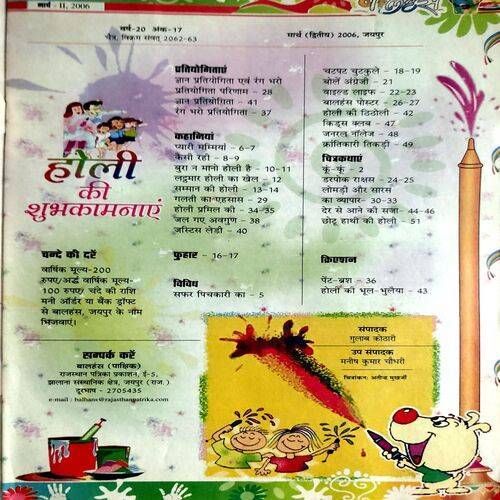 मार्च - II, 2006
वर्ष-20 अंक-17
चैत्र, विक्रम संवत् 2062-63
मार्च (द्वितीय) 2006, जयपुर
होली
की
शुभकामनाएं
प्रतियोगिताएं
ज्ञान प्रतियोगिता एवं रंग भरो
प्रतियोगिता परिणाम - 28
ज्ञान प्रतियोगिता - 41
रंग भरो प्रतियोगिता - 37
कहानियां
प्यारी मम्मियां - 6-7
कैसी रही - 8-9
बुरा न मानो होली है - 10-11
लट्ठमार होली का खेल - 12
सम्मान की होली - 13-14
गलती का एहसास - 29
होली प्रमिल की - 34-35
जल गए अवगुण - 38
जस्टिस लेडी - 40
चटपट चुटकुले - 18-19
बोलें अंग्रेजी - 21
वाइल्ड लाइफ - 22-23
बालहंस पोस्टर - 26-27
होली की ठिठोली - 42
किड्स क्लब - 47
जनरल नॉलेज - 48
क्रांतिकारी तिकड़ी - 49
चित्रकथाएं
कूं-कूं - 2
डरपोक राक्षस - 24-25
लोमड़ी और सारस
का व्यापार - 30-33
देर से आने की सजा - 44-46
छोटू हाथी की होली - 51
चन्दे की दरें
वार्षिक मूल्य-200
रुपए/अर्द्ध वार्षिक मूल्य-
100 रुपए/ चंदे की राशि
मनी ऑर्डर या बैंक ड्राफ्ट
से बालहंस, जयपुर के नाम
भिजवाएं।
फुहार - 16-17
विविध
सफर पिचकारी का - 5
क्रिएशन
पेंट-ब्रश - 36
होली की भूल-भुलैया - 43
सम्पर्क करें
बालहंस (पाक्षिक)
राजस्थान पत्रिका प्रकाशन, ई-5,
झालाना संस्थानिक क्षेत्र, जयपुर (राज.)
दूरभाष - 2705435
e-mail : balhans@rajasthanpatrika.com
संपादक
गुलाब कोठारी
उप संपादक
मनीष कुमार चौधरी
चित्रांकन: अतीन्द्र मुखर्जी